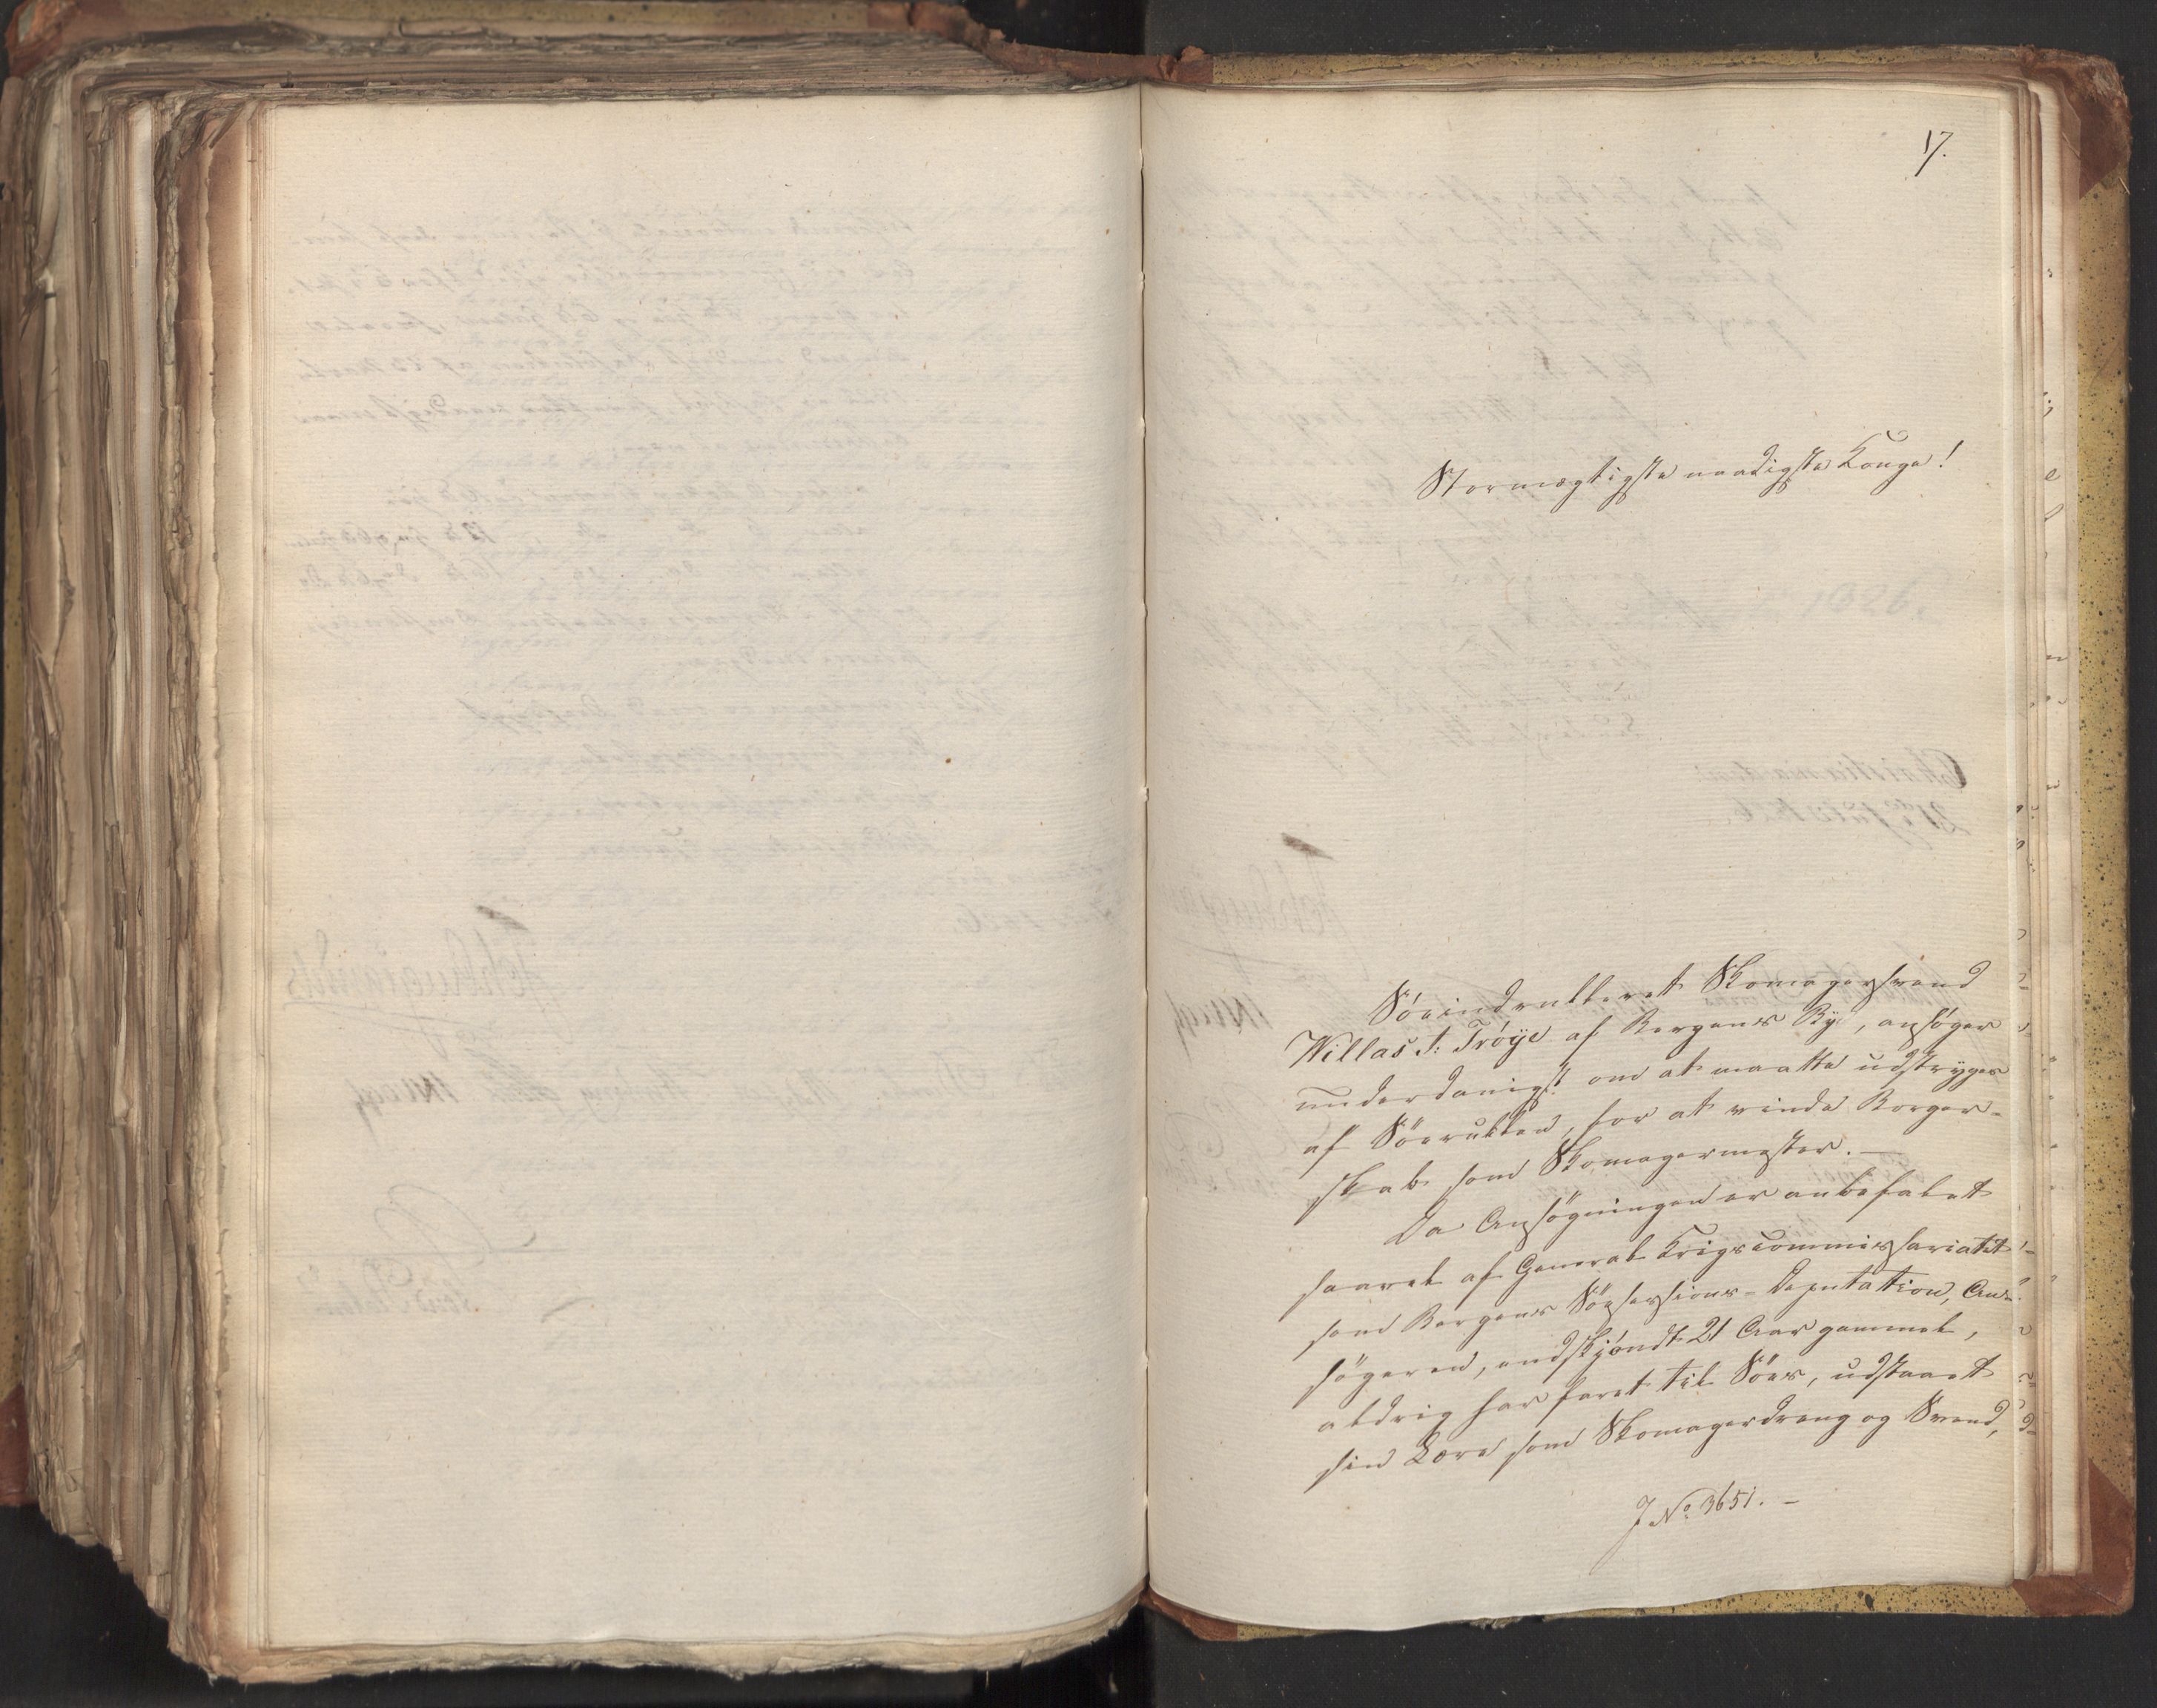 17.
Stormægtigste naadigste Konge!
Söeindrulleret Skomagersvend
Willas J: Tröye af Bergens By, ansöger
underdanigst om at maatte udstryges
af Söerullen, for at vinde Borger-
skab som Skomagermester. —
Da Ansögningen er anbefalet
saavel af General Krigscommissariatet
som Bergens Söesessions-Deputation, An-
sögeren, endskjöndt 21 Aar gammel,
aldrig har faret til Söes, udstaaet
sin Lære som Skomagerdreng og Svend,
J No 3651. —